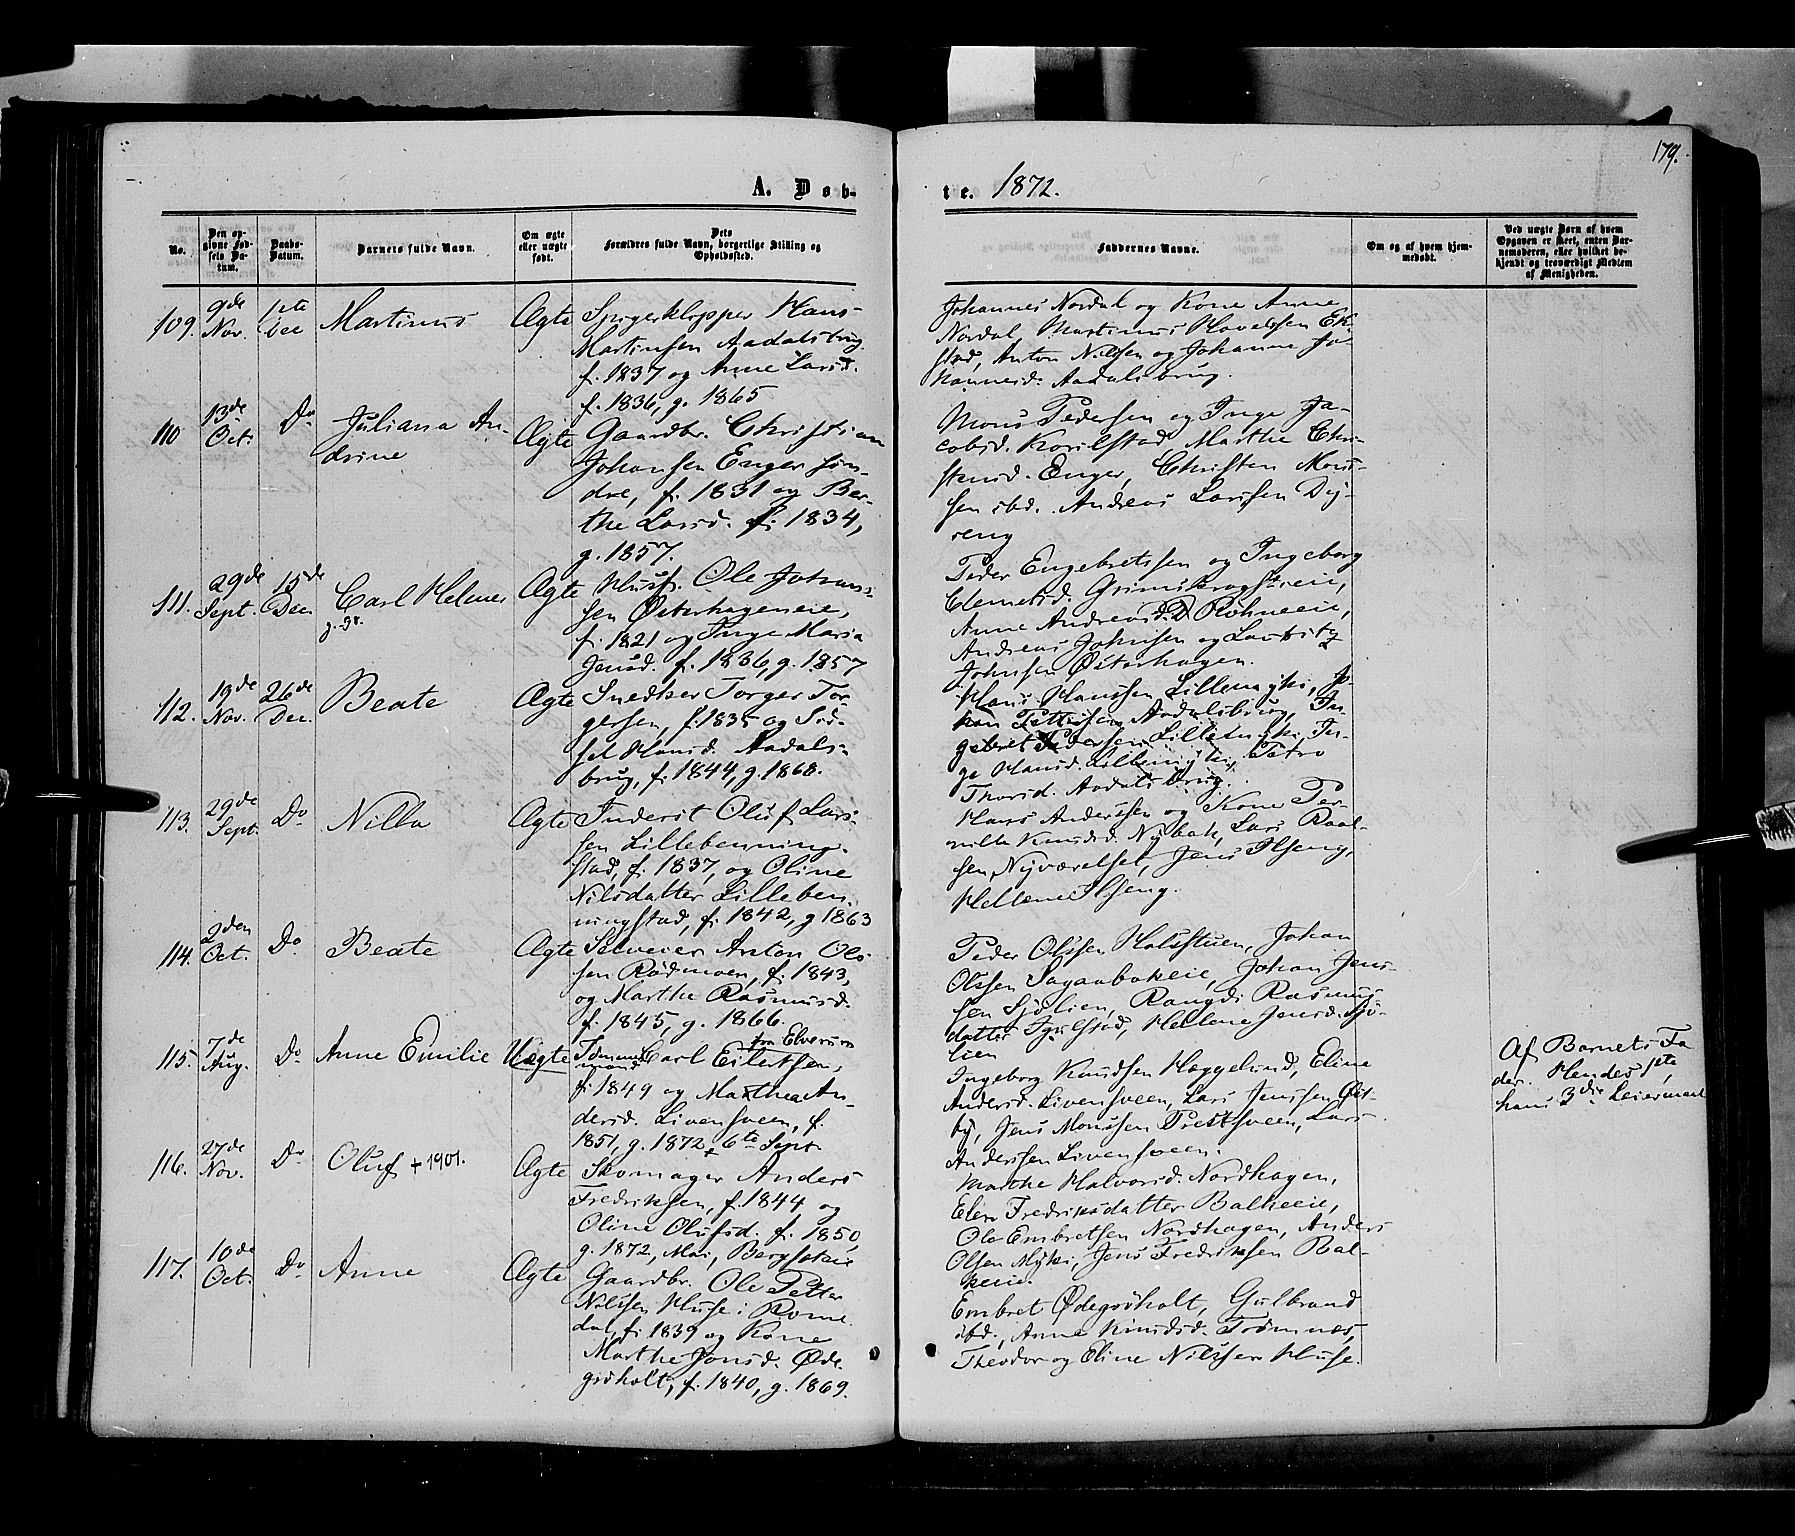 179.
A. Døb-
te. 1872.
No.
Den op-
givne Fød-
sels Da-
tum.
Daabs-
Datum.
Barnets fulde Navn.
Om ægte
eller uægte
født.
Dets
Forældres fulde Navn, borgerlige Stilling og
Opholdssted.
Faddernes Navne.
Om og af hvem hjem-
medøbt.
Ved uægte Børn af hvem
Opgaven er skeet, enten Bar-
nemoderen, eller hvilket be-
kjendt og troværdigt Medlem
af Menigheden.
109.
9de
Nov.
1ste
Dec
Martinus
Ægte
Spigerklipper Hans
Martinsen Aadalsbrug
f. 1837 og Anne Larsd.
f. 1836, g. 1865
Johannes Nordal og Kone Anne
Nordal, Martinus Havelsen Ek-
stad, Anton Nilsen og Johanne Jo-
hannesd. Aadalsbrug.
110
13de
Oct.
Do
Juliana An-
drine
Ægte
Gaardbr. Christian
Johansen Enger søn-
dre, f. 1831 og Ber-
the Larsd. f. 1834,
g. 1857.
Mons Pedersen og Inge Ja-
cobsd. Korilstad, Marthe Chri-
stensd. Enger, Christen Mons-
sen ibd. Andreas Larssen Dy-
reng
111.
29de
Sept.
15de
Dec.
Carl Helmer
g. 98.
Ægte
Husf. Ole Johans-
sen Østerhageneie,
f. 1821 og Inge Maria
Jensd. f. 1836, g. 1857
Peder Engebretssen og Ingeborg
Clemetsd. Grimskrogstreie,
Anne Andreasd. Røhneeie,
Andreas Johnsen og Lauritz
Johnsen Østerhagen.
112.
19de
Nov.
26de
Dec.
Beate
Ægte
Snedker Torger Tor-
gersen, f. 1835 og Sid-
sel Hansd. Aadals-
brug, f. 1844, g. 1868.
Hans Hanssen Lillemyhr, Jo-
han Pettersen Aadalsbrug, In-
gebret Pedersen Lillemyhr, In-
ge Hansd. Lillemyhr, Petra
Thorsd. Aadalsbrug.
113.
29de
Sept.
Do
Nilla
Ægte
Inderst Oluf Lars-
sen Lillebenning-
stad, f. 1837, og Oline
Nilsdatter Lilleben-
ningstad, f. 1842, g 1863
Hans Anderssen og Kone Per-
nille Knudsd. Nybak, Lars Paal-
sen Nyværelset, Jens Ilseng,
Hellene Ilseng.
114.
2den
Oct.
Do
Beate
Ægte
Selveier Anton Ols-
sen Rødmoen, f. 1843,
og Marthe Rasmusd.
f. 1845, g. 1866.
Peder Olssen Halsstuen, Johan
Olssen Sagaabakeie, Johan Jens-
sen Sjølien, Rangdi Rasmus-
datter Igelstad, Hellene Jensd. Sjø-
lien
115.
7de
Aug.
Do
Anne Emilie
Uægte
fra Elverum
Tømmer-
mand Carl Eilertsen,
f. 1849 og Mathea An-
dersd. Livensveen, f.
1851, g. 1872 6te Sept.
Ingeborg Knudsen Hæggelund, Eline
Andersd. Livensveen, Lars Jenssen Øst-
by, Jens Monssen Prestsveen, Lars
Anderssen Livensveen.
Af Barnets Fa
der. Hendes 1ste,
hans 3die Leiermaal
116.
27de
Nov.
Do
Oluf + 1901.
Ægte
Skomager Anders
Fredriksen, f. 1844 og
Oline Olufsd. f. 1850,
g. 1872, Mai, Bergsekeie
Marthe Halvorsd. Nordhagen,
Elen Fredriksdatter Balkeeie,
Ole Embretsen Nordhagen, Anders
Olsen Myhr, Jens Fredriksen Bal-
keeie.
117.
10de
Oct.
Do
Anne
Ægte
Gaardbr. Ole Petter
Nilssen Huse i Rome-
dal, f. 1839 og Kone
Marthe Jonsd. Øde-
gisholt, f. 1840, g. 1869.
Embret Ødegisholt, Gulbrand
ibd., Anne Knudsd. Trømnes,
Theodor og Eline Nilssen Huse.